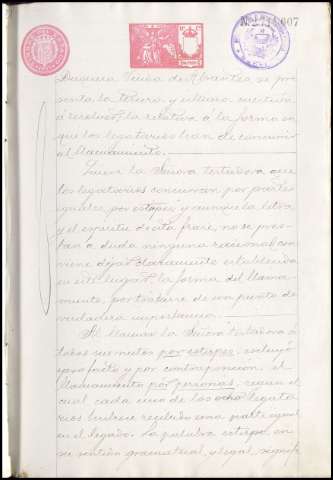 Duquesa Viuda de Abrantes, se pre-
senta la tercera y última cuestión
á resolver, la relativa á la forma en
que los legatarios han de concurrir
al llamamiento.
Quiere la Señora testadora que
los legatarios concurran por partes
iguales por estirpes y aunque la letra
y el espíritu de esta frase, no se pres-
tan á duda ninguna racional, con-
viene dejar claramente establecida
en este lugar, la forma del llama-
miento, por tratarse de un punto de
verdadera importancia.
Al llamar la Señora testadora á
todos sus nietos por estirpes, excluyó
ipso facto y por contraposición, el
llamamiento por personas, según el
cual cada uno de los ocho legata-
rios hubiere recibido una parte igual
en el legado. La palabra estirpe, en
su sentido gramatical y legal, signifi-